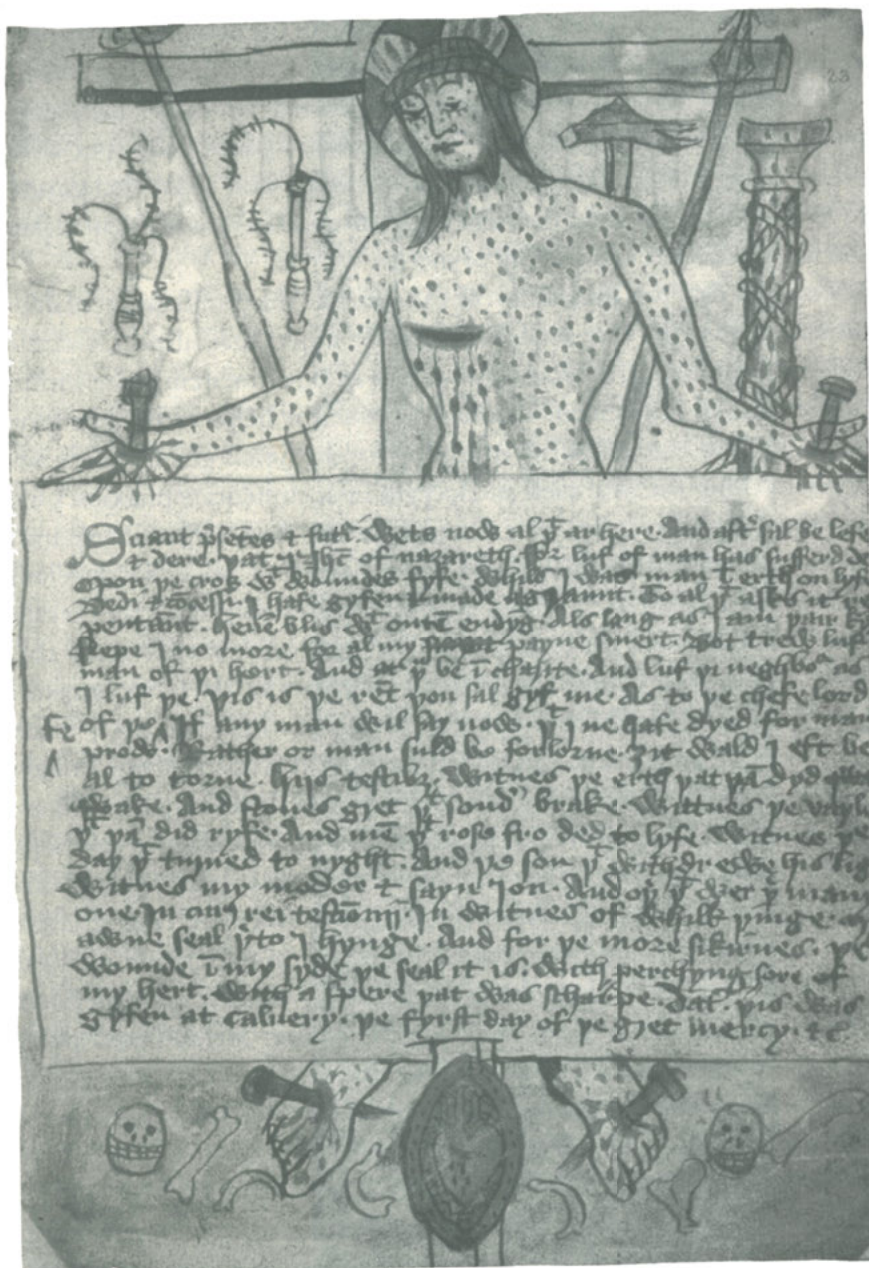 23
Sciant p̄sētes & futʳi. Wets now al þᵗ ar here. And aftʳ sal be lefe
& dere. þat I ihc̄ of nazareth. ffor luf of man has sufferd de
opon þe cros wᵗ woundes fyfe. Whils I was man ī erth on lyfe
Dedi & cōcessi. I hafe gyfen & made a To al þᵗ askes it re
pentant. heuē blis wᵗ outē endyg. Als lang as I am þair ky
kepe I no more for al my payne smert. Bot trew luf
man of þi hert. And at þᵘ be ī charite. And luf þi neghboʳ as
I luf þe. þis is þe rēt þou sal gyf me. As to þe chefe lord
of þe fe If any man wil say now. þᵗ I ne hafe dyed for man
prow. Rather or man suld be forlorne. ȝit wald I eft be
al to torne. hijs testibȝ. Witnes þe erth þat þā dyd
qwake. And stones gret þᵗ sondʳ brake. Wittnes þe vayle
þᵗ þā did ryfe. And mē þᵗ rose fro ded to lyfe. Witnes þe
day þᵗ turned to nyght. And þe son þᵗ withdrewe his lig
Witnes my moder & sayn Ion. And oþʳ þᵗ wer þʳ many
one. In cuiȝ rei testiōnij. In witnes of whilk þinge. my
awne seal þʳto I hynge. And for þe more sikirnes. þe
wounde ī my syde þe seal it is. With perchyng sore of
my hert. With a spere þat was scharpe. Dat. þis was
gyfen at Caluery. þe fyrst day of þe gret mercy. &c